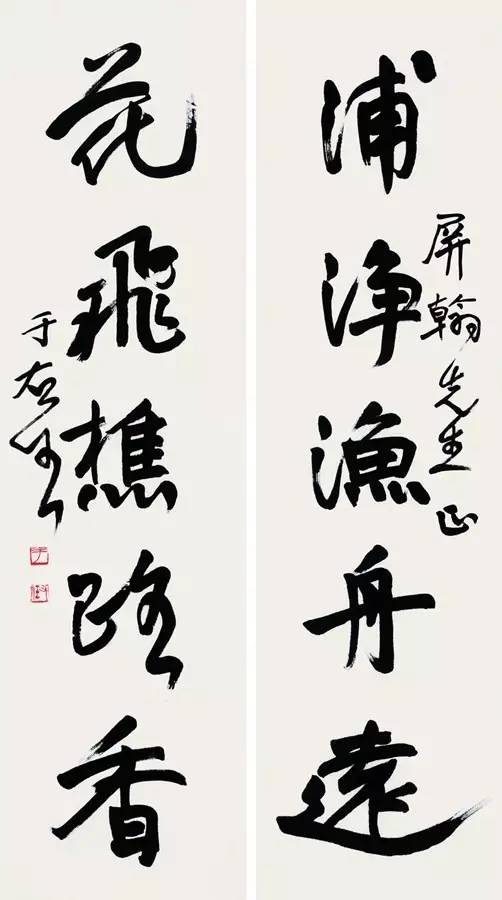 浦淨漁舟遠
屏翰先生正
花飛樵路香
于右任